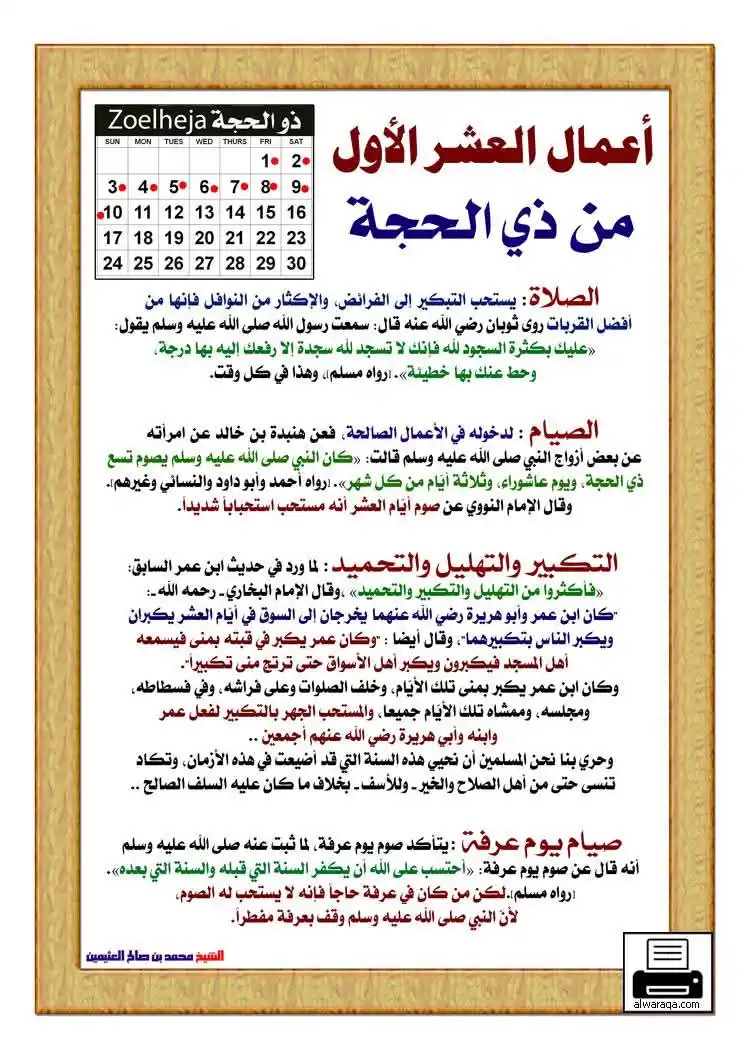 أعمال العشر الأول
من ذي الحجة
ذو الحجة Zoelheja
SUN MON TUES WED THURS FRI SAT
1 2
3 4 5 6 7 8 9
10 11 12 13 14 15 16
17 18 19 20 21 22 23
24 25 26 27 28 29 30
الصلاة : يستحب التبكير إلى الفرائض، والإكثار من النوافل فإنها من
أفضل القربات روى ثوبان رضي الله عنه قال: سمعت رسول الله صلى الله عليه وسلم يقول:
«عليك بكثرة السجود لله فإنك لا تسجد لله سجدة إلا رفعك إليه بها درجة،
وحط عنك بها خطيئة». [رواه مسلم]، وهذا في كل وقت.
الصيام : لدخوله في الأعمال الصالحة، فعن هنيدة بن خالد عن امرأته
عن بعض أزواج النبي صلى الله عليه وسلم قالت: «كان النبي صلى الله عليه وسلم يصوم تسع
ذي الحجة، ويوم عاشوراء، وثلاثة أيام من كل شهر». [رواه أحمد وأبو داود والنسائي وغيرهم].
وقال الإمام النووي عن صوم أيام العشر أنه مستحب استحباباً شديداً.
التكبير والتهليل والتحميد : لما ورد في حديث ابن عمر السابق:
«فأكثروا من التهليل والتكبير والتحميد» ،وقال الإمام البخاري ـ رحمه الله ـ:
"كان ابن عمر وأبو هريرة رضي الله عنهما يخرجان إلى السوق في أيام العشر يكبران
ويكبر الناس بتكبيرهما"، وقال أيضا : "وكان عمر يكبر في قبته بمنى فيسمعه
أهل المسجد فيكبرون ويكبر أهل الأسواق حتى ترتج منى تكبيراً".
وكان ابن عمر يكبر بمنى تلك الأيام، وخلف الصلوات وعلى فراشه، وفي فسطاطه،
ومجلسه، وممشاه تلك الأيام جميعا، والمستحب الجهر بالتكبير لفعل عمر
وابنه وأبي هريرة رضي الله عنهم أجمعين ..
وحري بنا نحن المسلمين أن نحيي هذه السنة التي قد أضيعت في هذه الأزمان، وتكاد
تنسى حتى من أهل الصلاح والخير ـ وللأسف ـ بخلاف ما كان عليه السلف الصالح ..
صيام يوم عرفة : يتأكد صوم يوم عرفة، لما ثبت عنه صلى الله عليه وسلم
أنه قال عن صوم يوم عرفة: «أحتسب على الله أن يكفر السنة التي قبله والسنة التي بعده».
[رواه مسلم].لكن من كان في عرفة حاجاً فإنه لا يستحب له الصوم،
لأن النبي صلى الله عليه وسلم وقف بعرفة مفطراً.
الشيخ محمد بن صالح العثيمين
alwaraqa.com